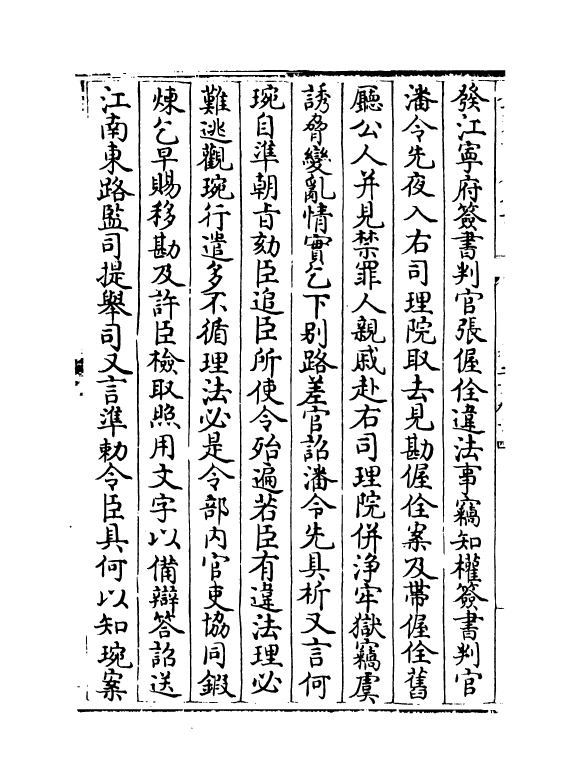 發江寧府簽書判官張偓佺違法事竊知權簽書判官
潘令先夜入右司理院取去見勘偓佺案及帶偓佺舊
廳公人并見禁罪人親戚赴右司理院併淨牢獄竊虞
誘脅變亂情實乞下别路差官詔潘令先具析又言何
琬自準朝㫖劾臣追臣所使令殆遍若臣有違法理必
難逃觀琬行遣多不循理法必是令部内官吏協同鍜
煉乞早賜移勘及許臣檢取照用文字以備辯答詔送
江南東路監司提舉司又言準勅令臣具何以知琬案